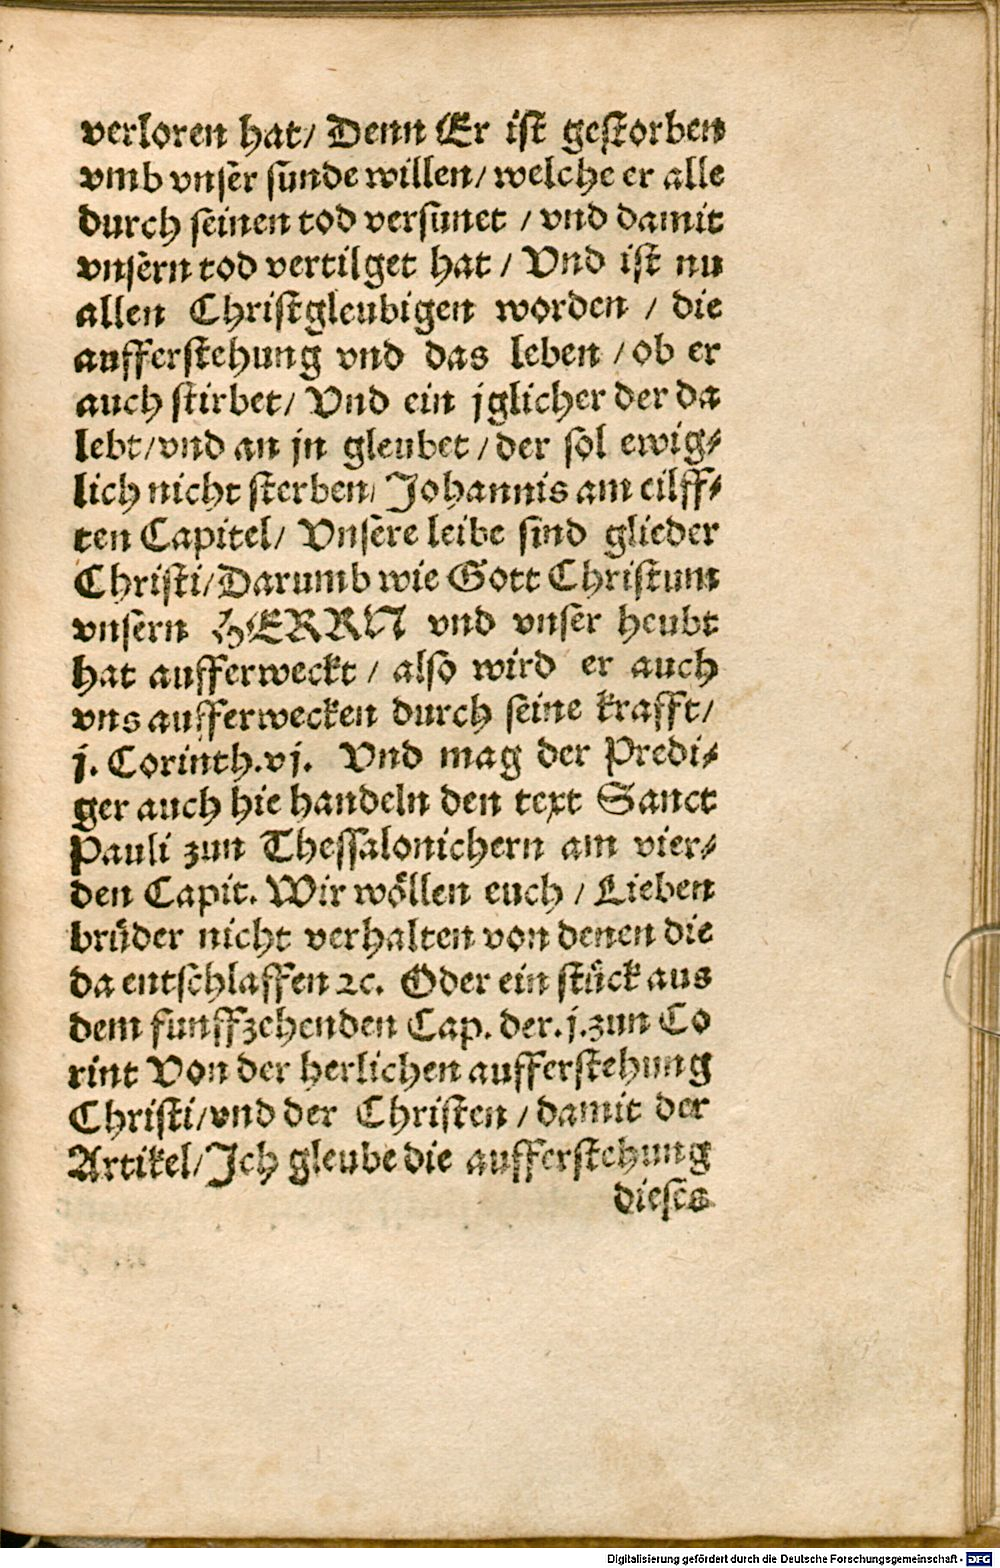 verloren hat/ Denn Er ist gestorben
vmb vnser sunde willen/ welche er alle
durch seinen tod versunet / vnd damit
vnsern tod vertilget hat / Vnd ist nu
allen Christgleubigen worden / die
aufferstehung vnd das leben / ob er
auch stirbet/ Vnd ein jglicher der da
lebt/vnd an jn gleubet / der sol ewig⸗
lich nicht sterben/ Johannis am eilff⸗
ten Capitel/ Vnsere leibe sind glieder
Christi/Darumb wie Gott Christum
vnsern HERRN vnd vnser heubt
hat aufferweckt / also wird er auch
vns aufferwecken durch seine krafft/
j. Corinth.vj. Vnd mag der Predi⸗
ger auch hie handeln den text Sanct
Pauli zun Thessalonichern am vier⸗
den Capit. Wir wöllen euch / Lieben
brüder nicht verhalten von denen die
da entschlaffen ꝛc. Oder ein stück aus
dem funffzehenden Cap. der.j.zun Co
rint Von der herlichen aufferstehung
Christi/vnd der Christen / damit der
Artikel/Ich gleube die aufferstehung
dieses
Digitalisierung gefördert durch die Deutsche Forschungsgemeinschaft - DFG